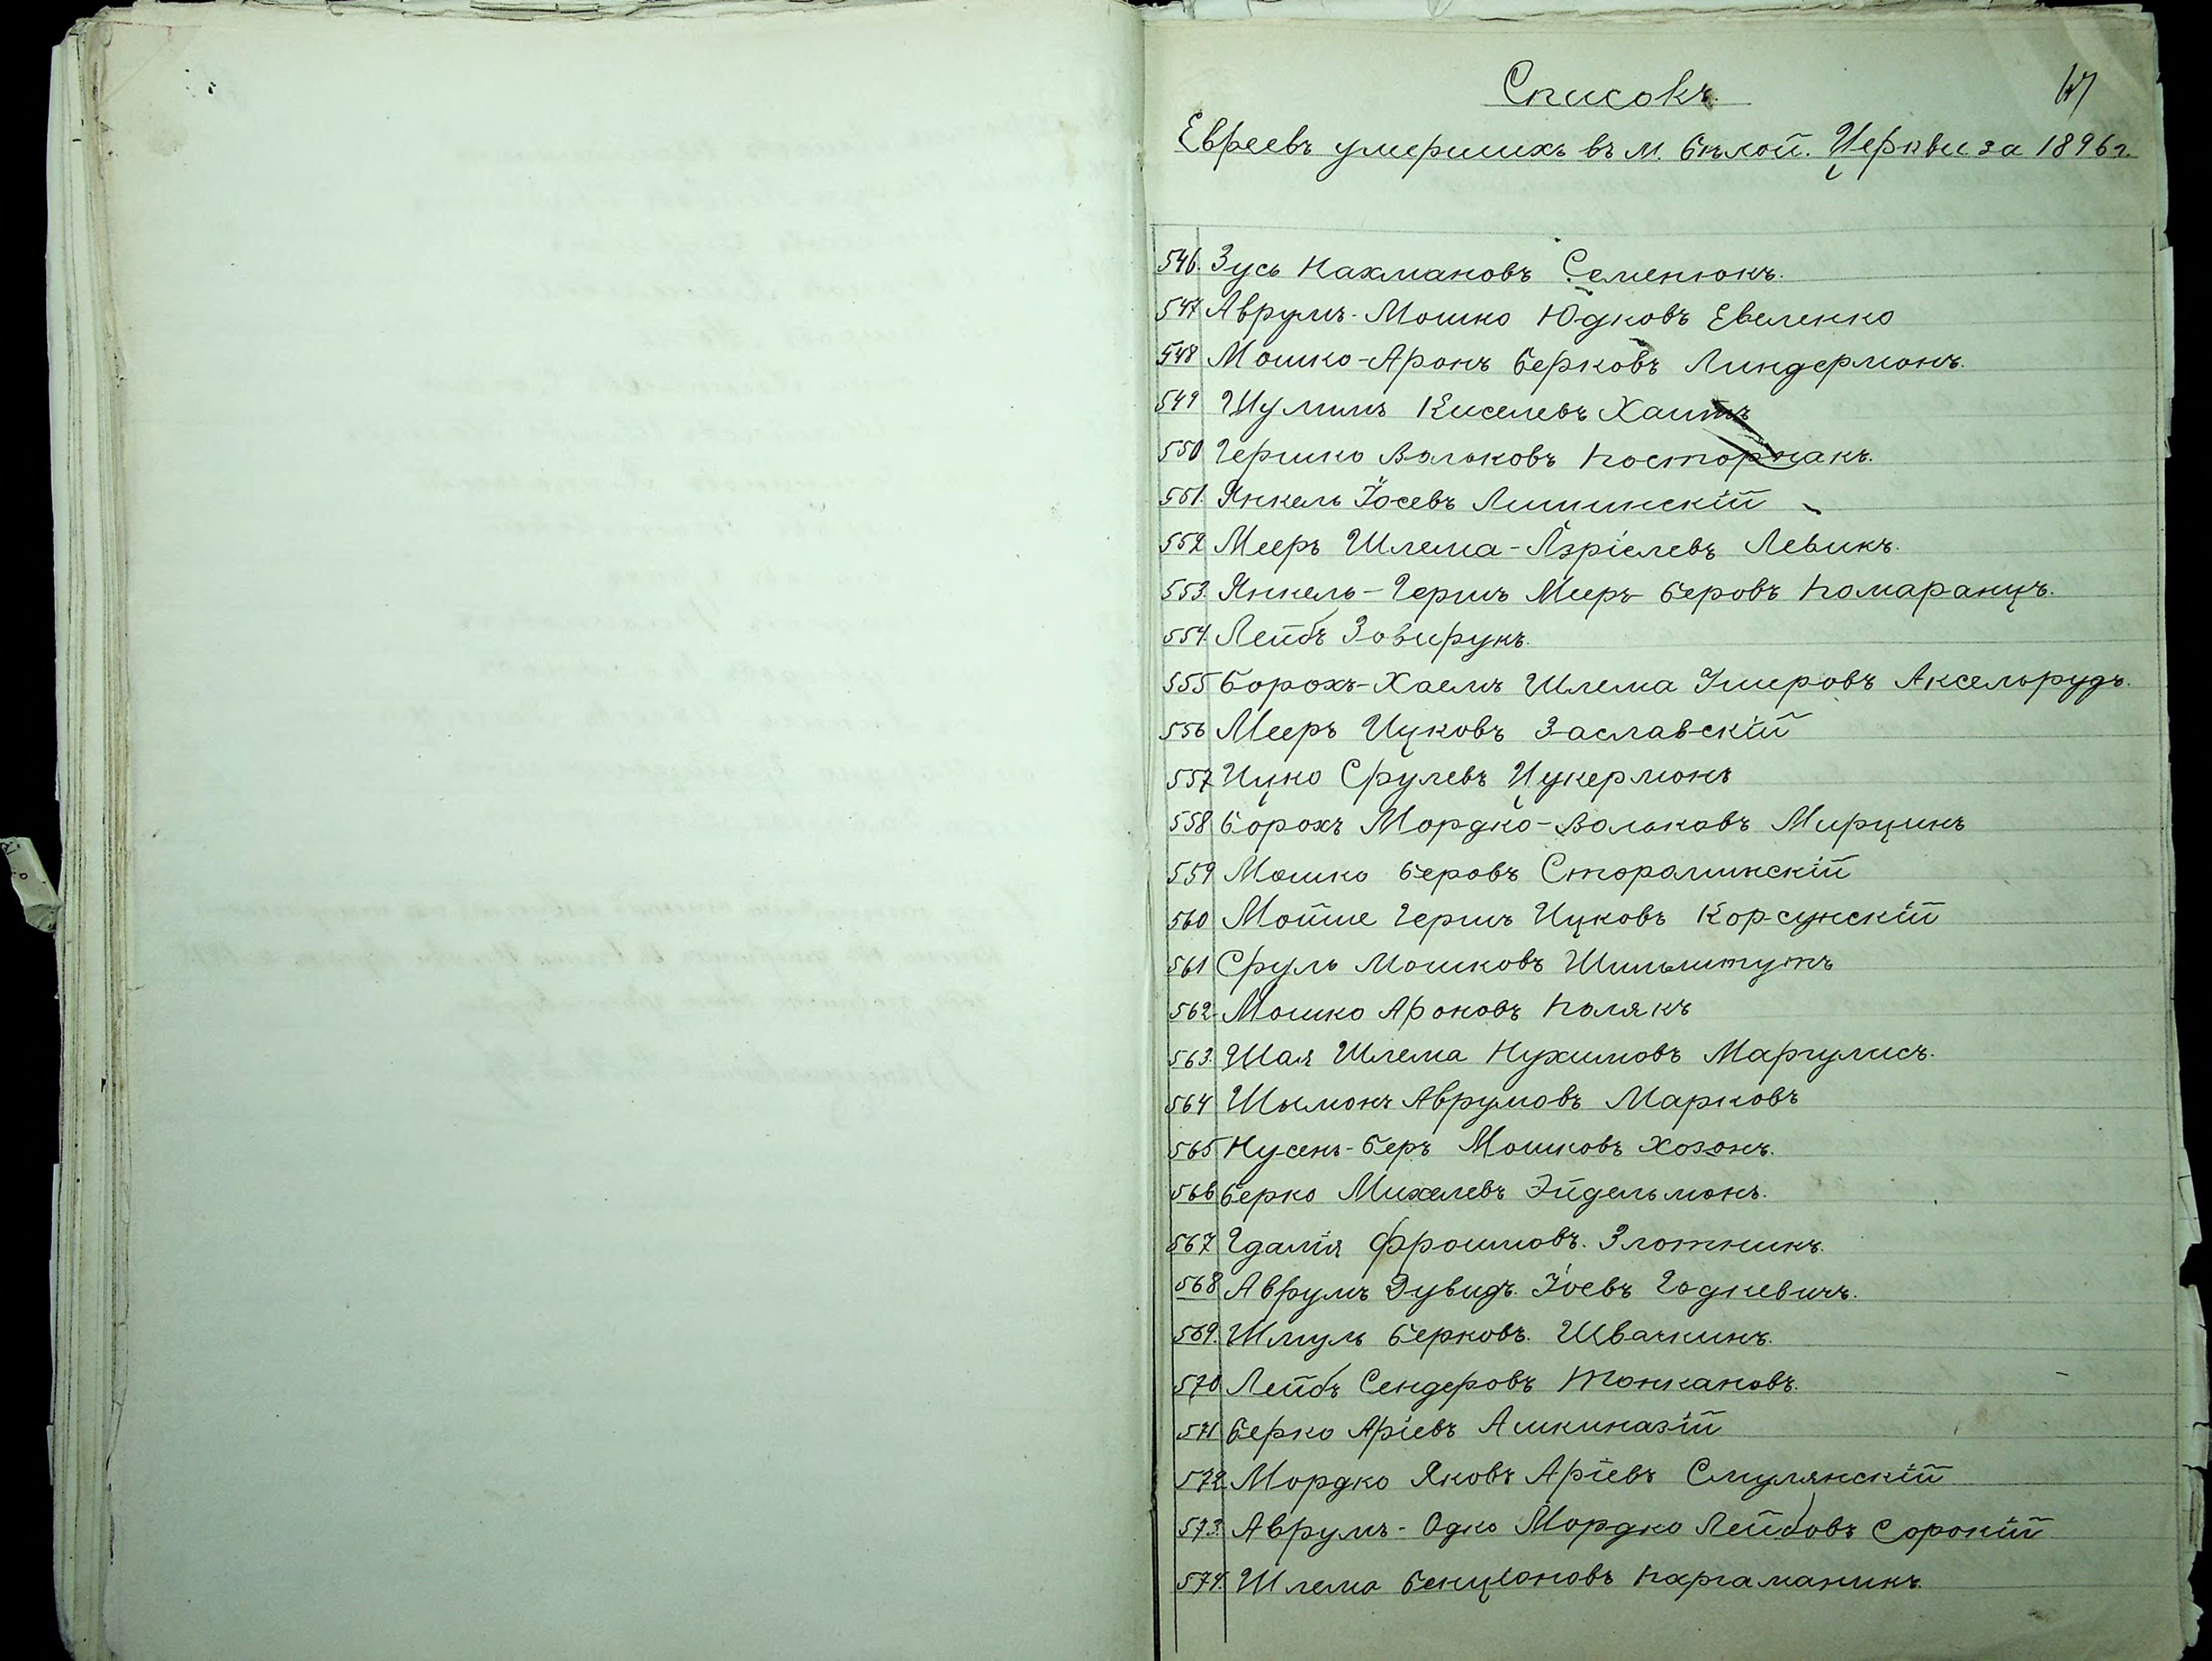 Списокъ.
Евреевъ умершихъ въ м. Бѣлой. Церкви за 1896 г.
546. Зусь Нахмановъ Семенюкъ.
547 Аврумъ-Мошко Юдковъ Евеленко
548 Мошко-Аронъ Берковъ Линдермонъ.
549 Шулимъ Киселевъ
550 Гершко Вольковъ Посторнакъ.
551. Янкель Іосевъ Липинскій
552 Мееръ Шлема-Азріелевъ Левикъ.
553. Янкель-Гершъ Мееръ Беровъ Помаранцъ.
554. Лейбъ Зовирукъ.
555 Борохъ-Хаемъ Шлема Умеровъ Аксельрудъ.
556 Мееръ Ицковъ Заславскій
557 Ицко Срулевъ Цукермонъ
558 Борохъ Мордко-Вольковъ Мирцинъ
559 Мошко Беровъ Сторолинскій
560 Мойше Гершъ Ицковъ Корсунскій
561 Сруль Мошковъ
562 Мошко Ароновъ Полякъ
563. Шая Шлема Нухимовъ Маргулисъ.
564 Шымонъ Аврумовъ Марковъ
565 Нусенъ-Беръ Мошковъ Хозонъ.
566 Берко Михелевъ Эйдельмонъ.
567 Гдалія Фроимовъ. Злотникъ.
568 Аврумъ Дувидъ. Іоевъ Годкевичъ.
569. Шмуль Берковъ. Швачкинъ.
570 Лейбъ Сендеровъ Тонкановъ.
571 Берко Аріевъ Ашкиназій
572 Мордко Яковъ Аріевъ Смулянскій
573. Аврумъ-Одко Мордко Лейбовъ Сорокій
574. Шлема Бенціоновъ Паргаманикъ.